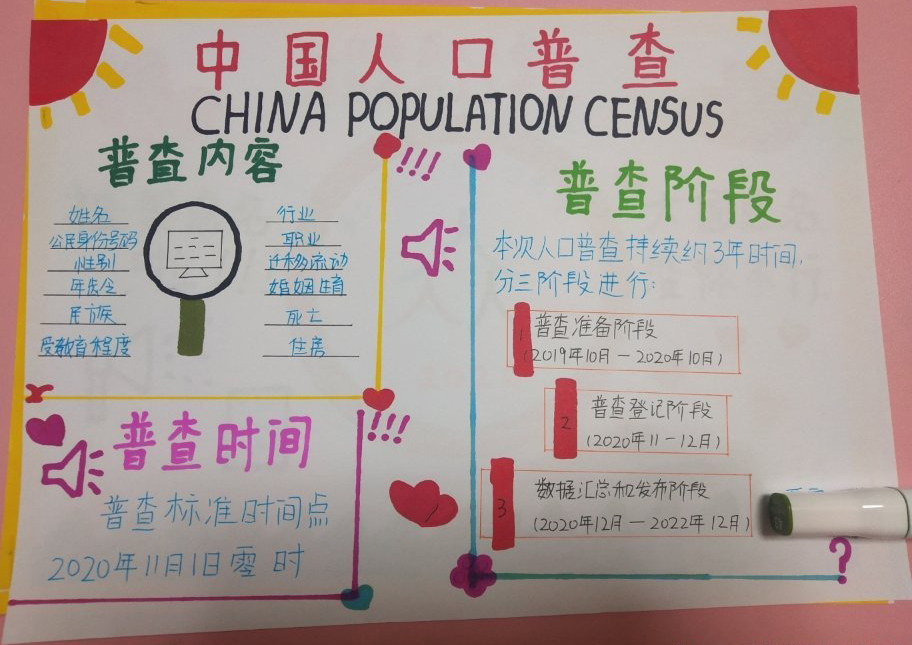 中国人口普查
CHINA POPULATION CENSUS
普查内容
姓名
公民身份号码
性别
年龄
民族
受教育程度
行业
职业
迁移流动
婚姻生育
死亡
住房
!!!
普查时间
普查标准时间点
2020年11月1日零时
!!!
普查阶段
本次人口普查持续约3年时间,
分三阶段进行:
1
普查准备阶段
(2019年10月—2020年10月)
2
普查登记阶段
(2020年11—12月)
3
数据汇总和发布阶段
(2020年12月—2022年12月)
?